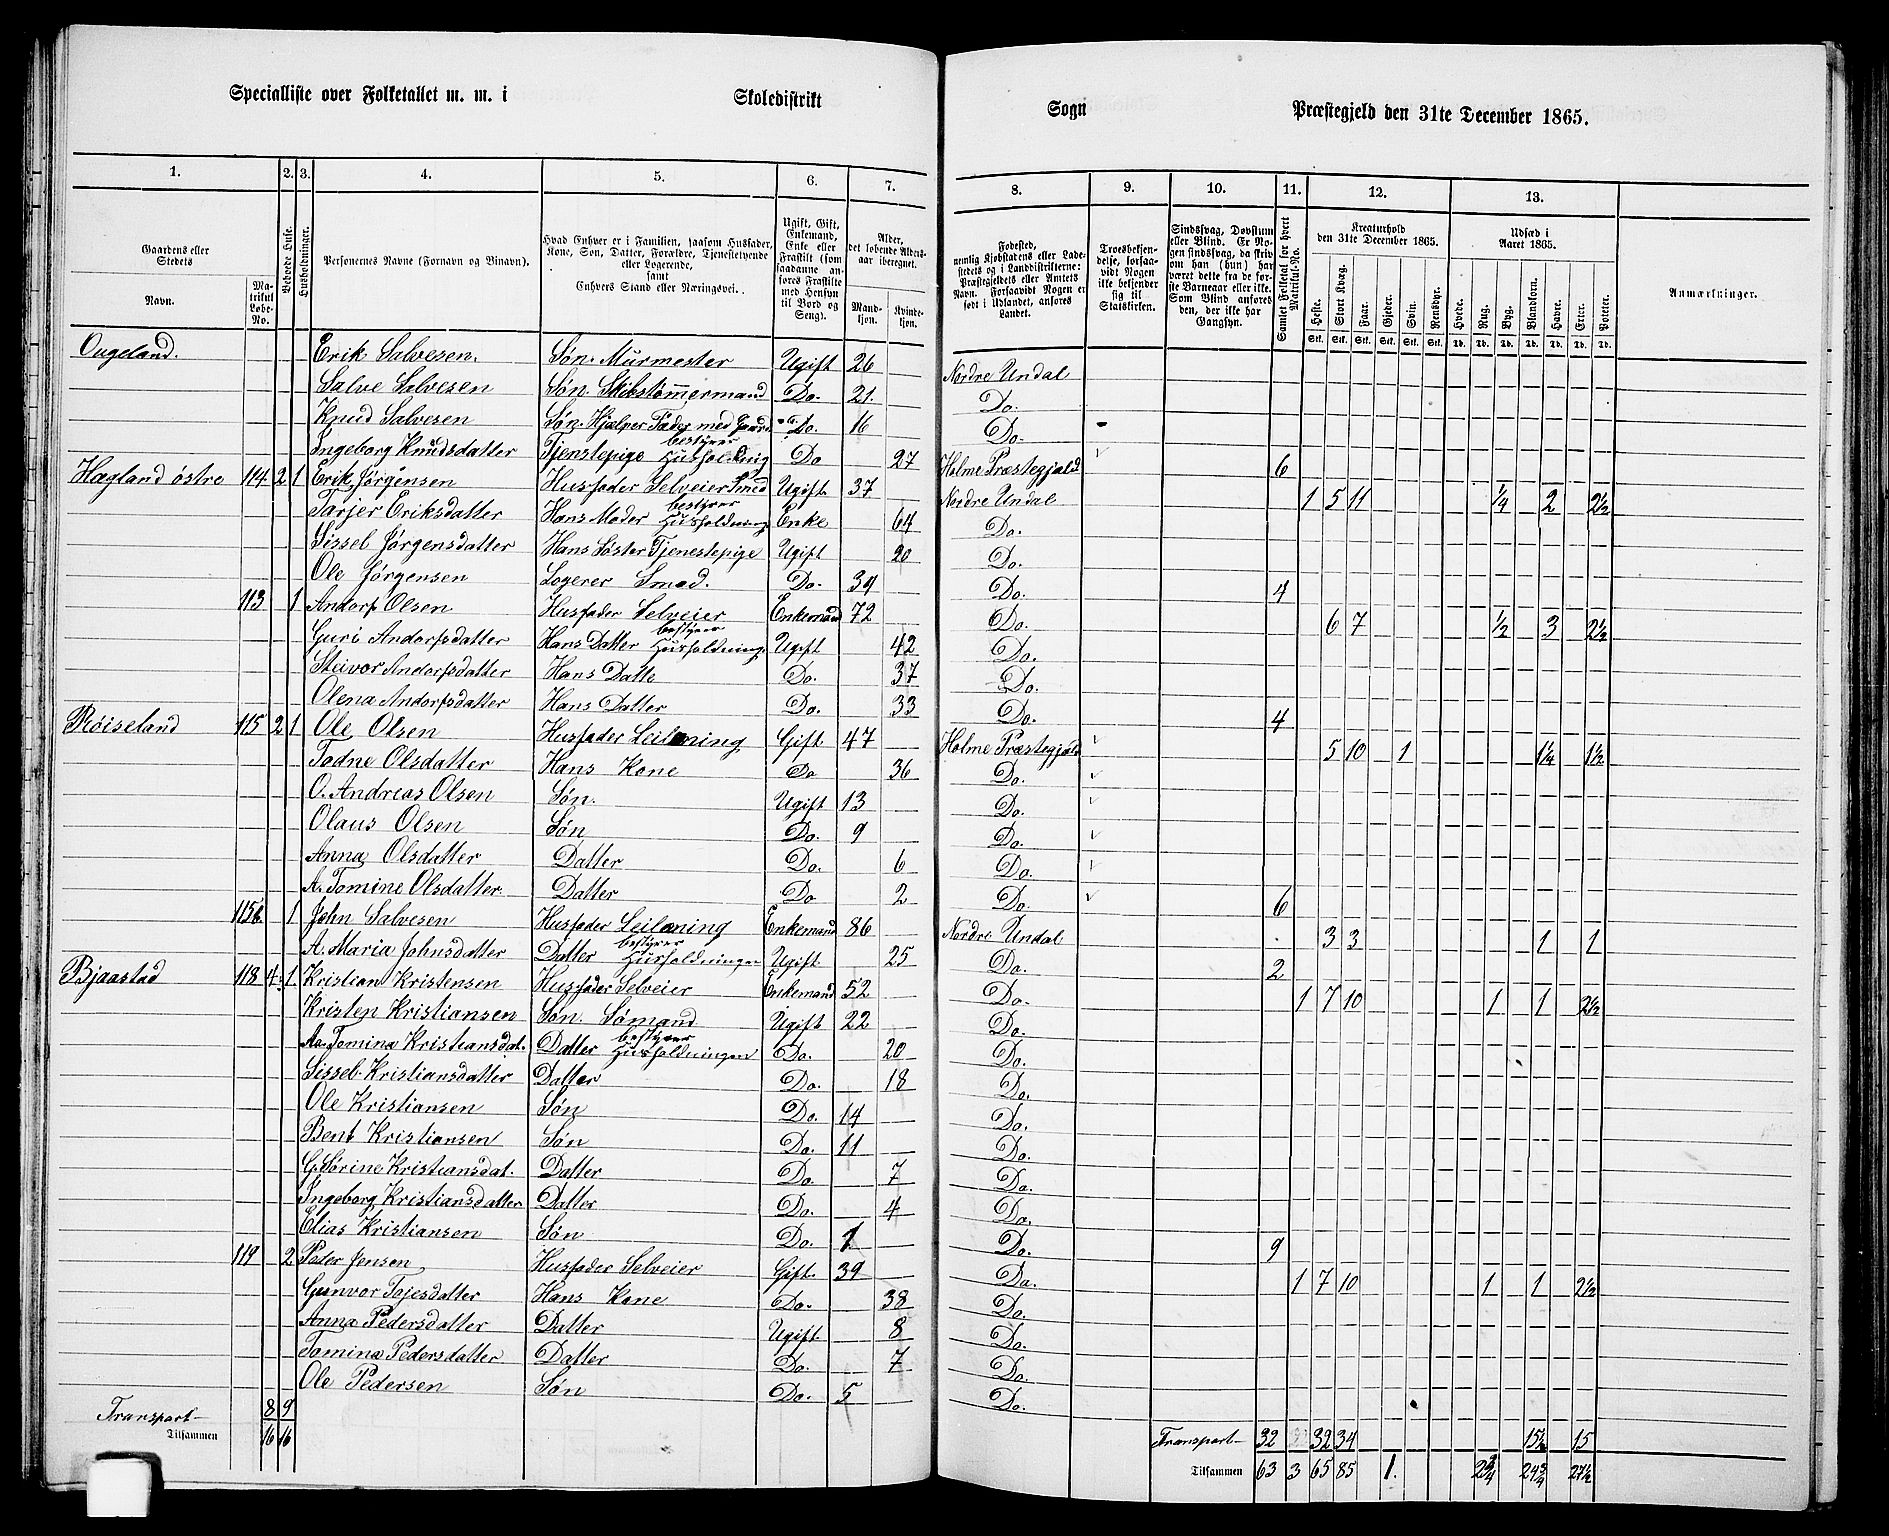 Specialliste over Folketallet m. m. i Skoledistrikt Sogn Præstegjeld den 31te December 1865.
1. 2. 3. 4. 5. 6. 7. 8. 9. 10. 11. 12. 13.
Gaardens eller Stedets Navn. Matrikul Løbe-No. Beboede Huse. Husholdninger. Personernes Navne (Fornavn og Binavn).
Hvad Enhver er i Familien, saasom Husfader, Kone, Søn, Datter, Forældre, Tjenestetyende eller Logerende, samt Enhvers Stand eller Næringsvei.
Ugift, Gift, Enkemand, Enke eller Fraskilt (som saadanne anføres Fraskilte med Hensyn til Bord og Seng).
Alder, det løbende Aldersaar iberegnet. Mandkjøn. Kvindekjøn.
Fødested, nemlig Kjøbstadens eller Ladestedets og i Landdistrikterne: Præstegjeldets eller Amtets Navn. Forsaavidt Nogen er født i Udlandet, anføres Landet.
Troesbekjendelse, forsaavidt Nogen ikke bekjender sig til Statskirken.
Sindssvag, Døvstum eller Blind. Er Nogen sindssvag, da skriv om han (hun) har været dette fra de første Barneaar eller ikke. Som Blind anføres den, der ikke har Gangsyn.
Samlet Folketal for hvert Matrikul-No.
Kreaturhold den 31te December 1865. Heste. Stort Kvæg. Faar. Gjeder. Svin. Rensdyr.
Udsæd i Aaret 1865. Hvede. Rug. Byg. Blandkorn. Havre. Erter. Poteter.
Anmærkninger.
Ougeland. Erik Salvesen. Søn. Murmester Ugift 26 Nordre Undal
Salve Salvesen Søn. Skibstømmermand Do. 21. Do.
Knud Salvesen Søn. Hjelper Fader med Do. 16 Do.
Ingeborg Knudsdatter Tjenstepige bestyrer Husholdning Do 27 Holme Præstegjæld 6
Hægland østre 114 2 1 Erik Jørgensen Husfader Selveier Smed Ugift 37 Nordre Undal 1 5 11 ¼ 2 2½
Tarjer Eriksdatter Hans Moder bestyrer Husholdning Enke 64 Do.
Sissel Jørgensdatter Hans Søster Tjenestepige Ugift 20 Do.
Ole Jørgensen Logerer Smed. Do. 34 Do. 4
113 1 Andorf Olsen Husfader Selveier Enkemand 72 Do. 6 7 ½ 3 2½
Guri Andorfsdatter Hans Datter bestyrer Husholdning Ugift 42 Do.
Steivor Andorfsdatter Hans Datte Do. 37 Do.
Olena Andorfsdatter Hans Datter Do. 33 Do. 4
Røiseland 115 2 1 Ole Olsen Husfader Leilænning Gift 47 Holme Præstegjæld 5 10 1 1¼ 1½
Todne Olsdatter Hans Kone Do 36 Do.
O. Andreas Olsen Søn. Ugift 13 Do.
Olaus Olsen Søn Do. 9 Do.
Anna Olsdatter Datter Do. 6 Do.
A. Tomine Olsdatter. Datter Do 2 Do. 6
115b 1 John Salvesen Husfader Leilænning Enkemand 86 Nordre Undal 3 3 1 1
A. Maria Johnsdatter Datter bestyrer Husholdningen Ugift 25 Do. 2
Bjaastad 118 4 1. Kristian Kristensen Husfader Selveier Enkemand 52 Do. 1 7 10 1 1 2½
Kristen Kristiansen Søn. Sømand Ugift 22 Do.
Aa. Tomina Kristiansdat. Datter bestyrer Husholdningen Do. 20 Do.
Sissel Kristiansdatter Datter Do. 18 Do.
Ole Kristiansen Søn Do. 14 Do.
Bent Kristiansen Søn Do. 11 Do.
G. Sørine Kristiansdat. Datter Do. 7 Do.
Ingeborg Kristiansdatter Datter Do. 4 Do.
Elias Kristiansen Søn Do. 1 Do. 9
119 2 Peder Jensen Husfader Selveier Gift. 39 Do. 1 7 10 1 1 2½
Gunvor Tojesdatter Hans Kone Do. 38 Do.
Anna Pedersdatter Datter Ugift 8 Do.
Tomina Pedersdatter Datter Do. 7 Do.
Ole Pedersen Søn Do. 5 Do.
Transport 8 9 Transport 32 32 34 15½ 15
Tilsammen 16 16 Tilsammen 63 3 65 85 1. 2¾ 24¾ 27½